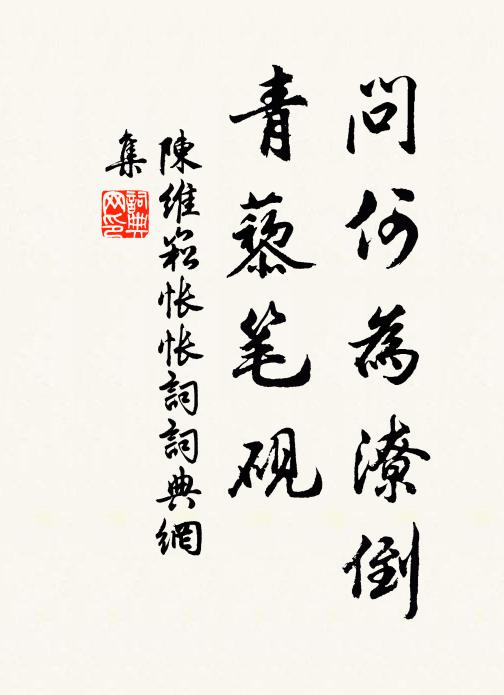 問何為潦倒
青藜笔硯
陳維崧悵悵詞詞典網
集
詞典
网印